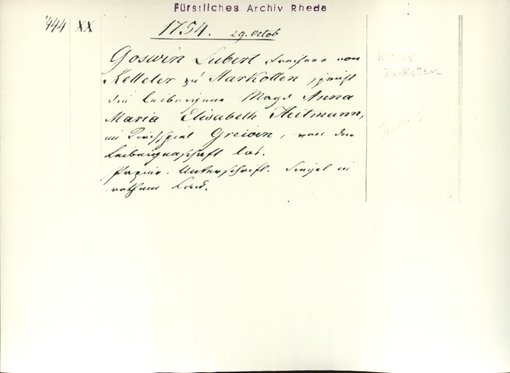 Fürstliches Archiv Rheda
444 XX
1754. 29. Octob
Goswin Lubert Freiherr von
Ketteler zu Harkotten, spricht
die leibeigene Magd Anna
Maria Elisabeth Heitmann,
im Kirchspiel Greven, von der
Leibeigenschaft los.
Papier. Unterschrift. Siegel in
rothem Lack.